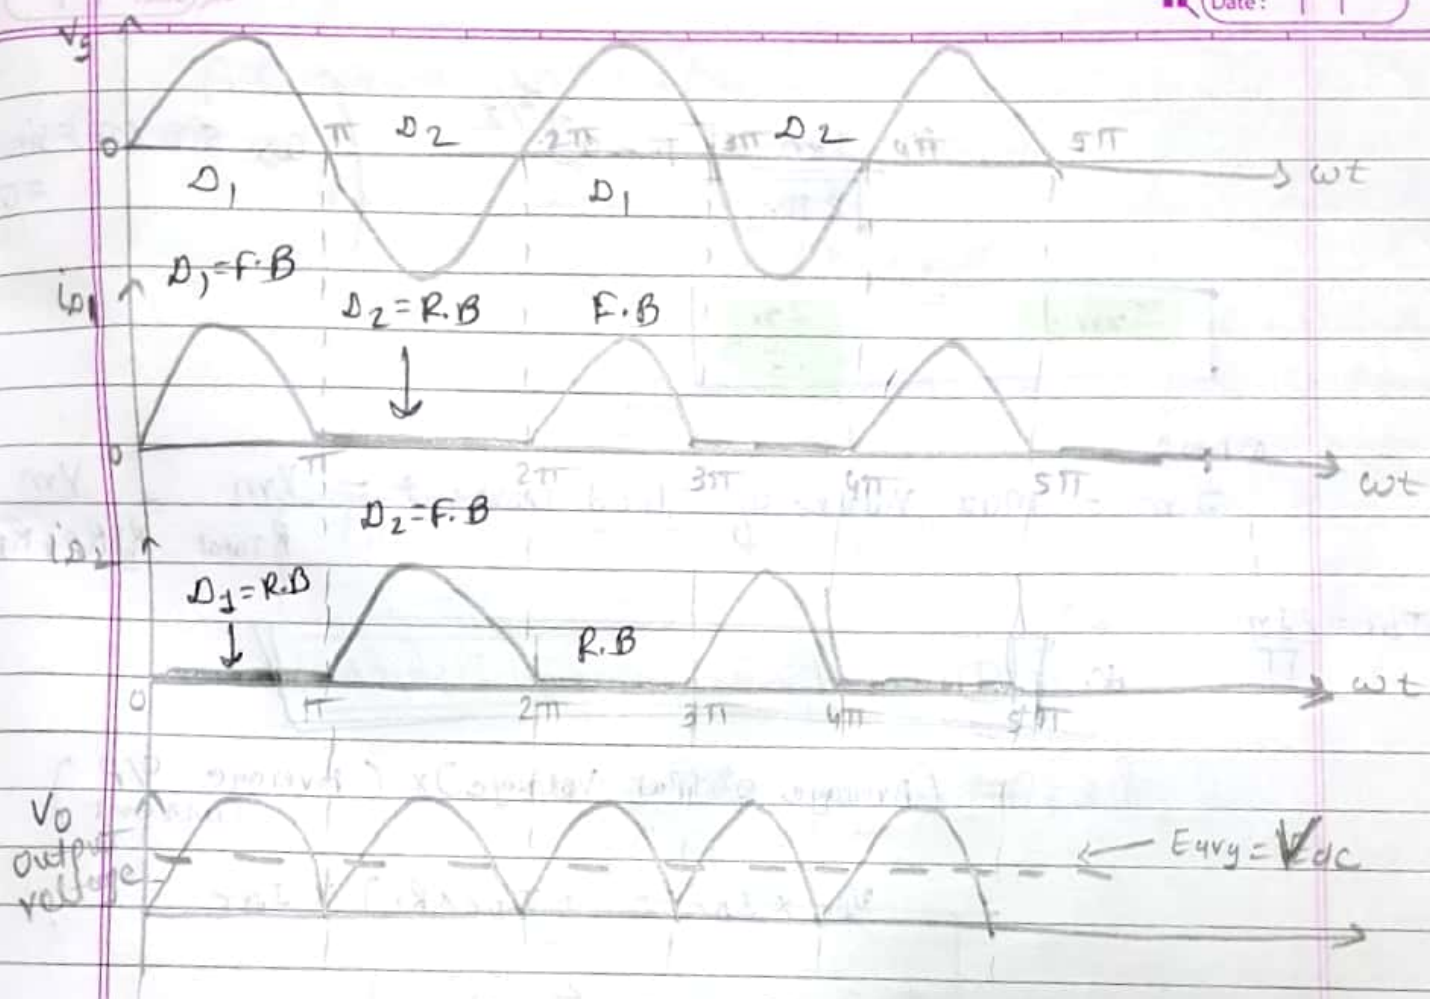 Date:
Vs
π D2 2π 3π D2 4π 5π
0 ωt
D1 D1
D1=F.B
iD1 D2=R.B F.B
0 π 2π 3π 4π 5π ωt
D2=F.B
iD2
D1=R.B
R.B
0 π 2π 3π 4π 5π ωt
V0
output
voltage
Eavg=Vdc